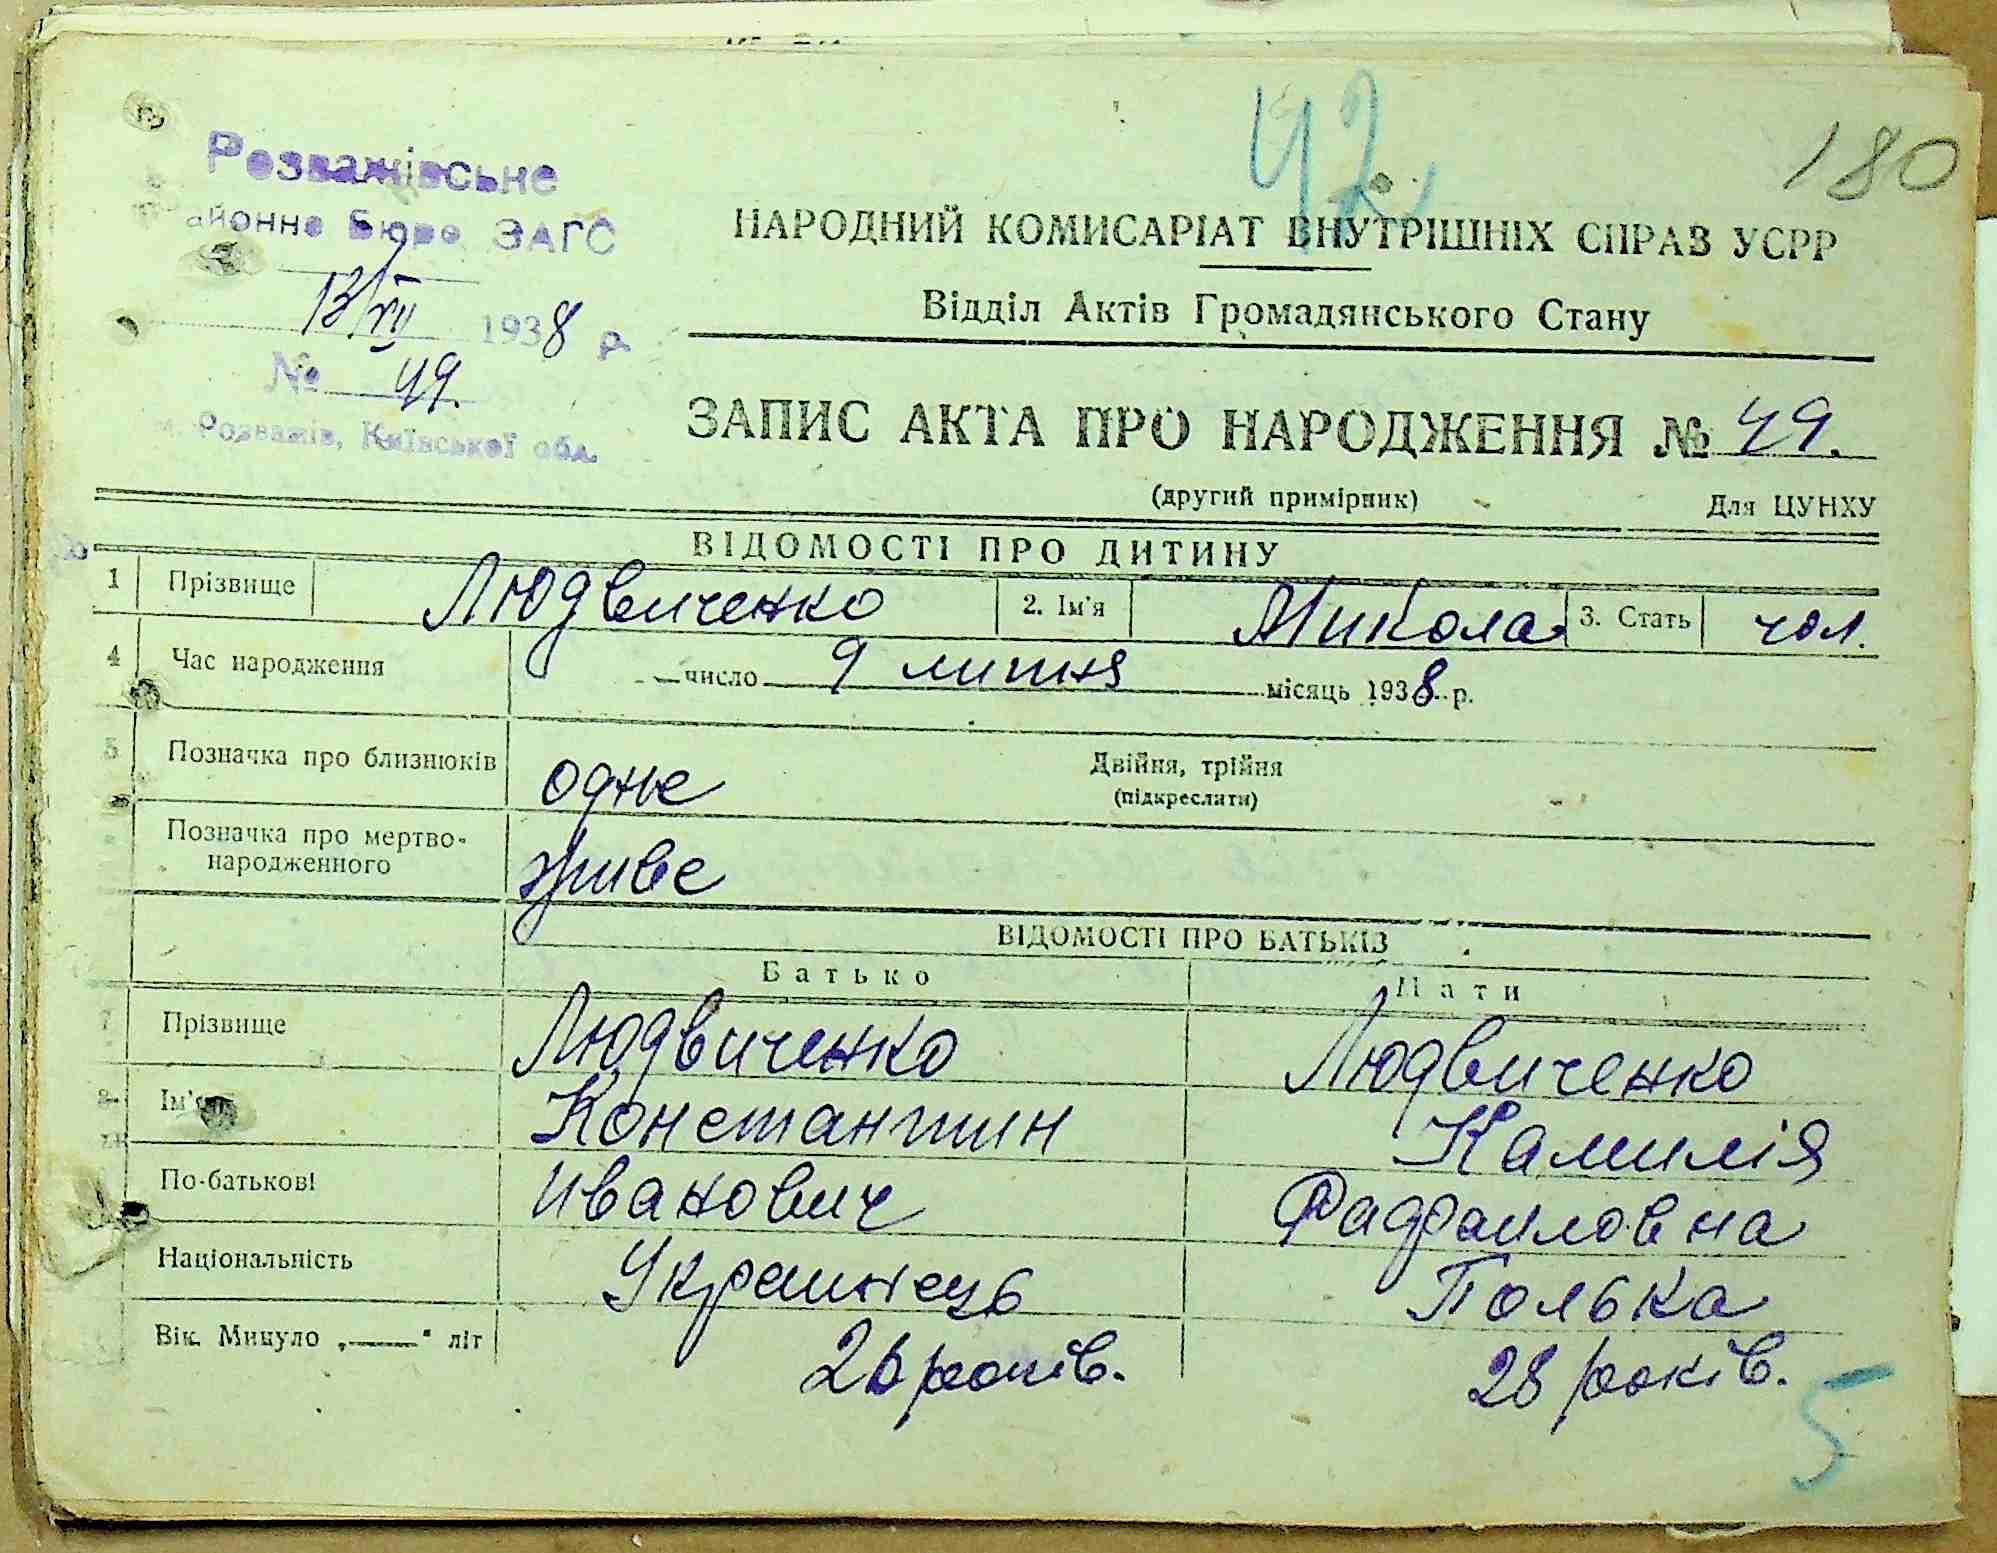 42
180
Розважівське
районне Бюро ЗАГС
13/VII 1938 р.
№ 49.
м. Розважів, Київської обл.
НАРОДНИЙ КОМИСАРІАТ ВНУТРІШНІХ СПРАВ УСРР
Відділ Актів Громадянського Стану
ЗАПИС АКТА ПРО НАРОДЖЕННЯ № 49.
(другий примірник) Для ЦУНХУ
ВІДОМОСТІ ПРО ДИТИНУ
1 Прізвище Людвиченко 2. Ім'я Микола 3. Стать чол.
4 Час народження число 9 липня місяць 1938 р.
5 Позначка про близнюків одне Двійня, трійня
(підкреслити)
Позначка про мертво-
народженного живе
ВІДОМОСТІ ПРО БАТЬКІВ
Батько Мати
7 Прізвище Людвиченко Людвиченко
8 Ім'я Константин Камилія
По-батькові Иванович
Національність Українець Полька
Вік. Минуло „——" літ 26 років. 28 років.
5